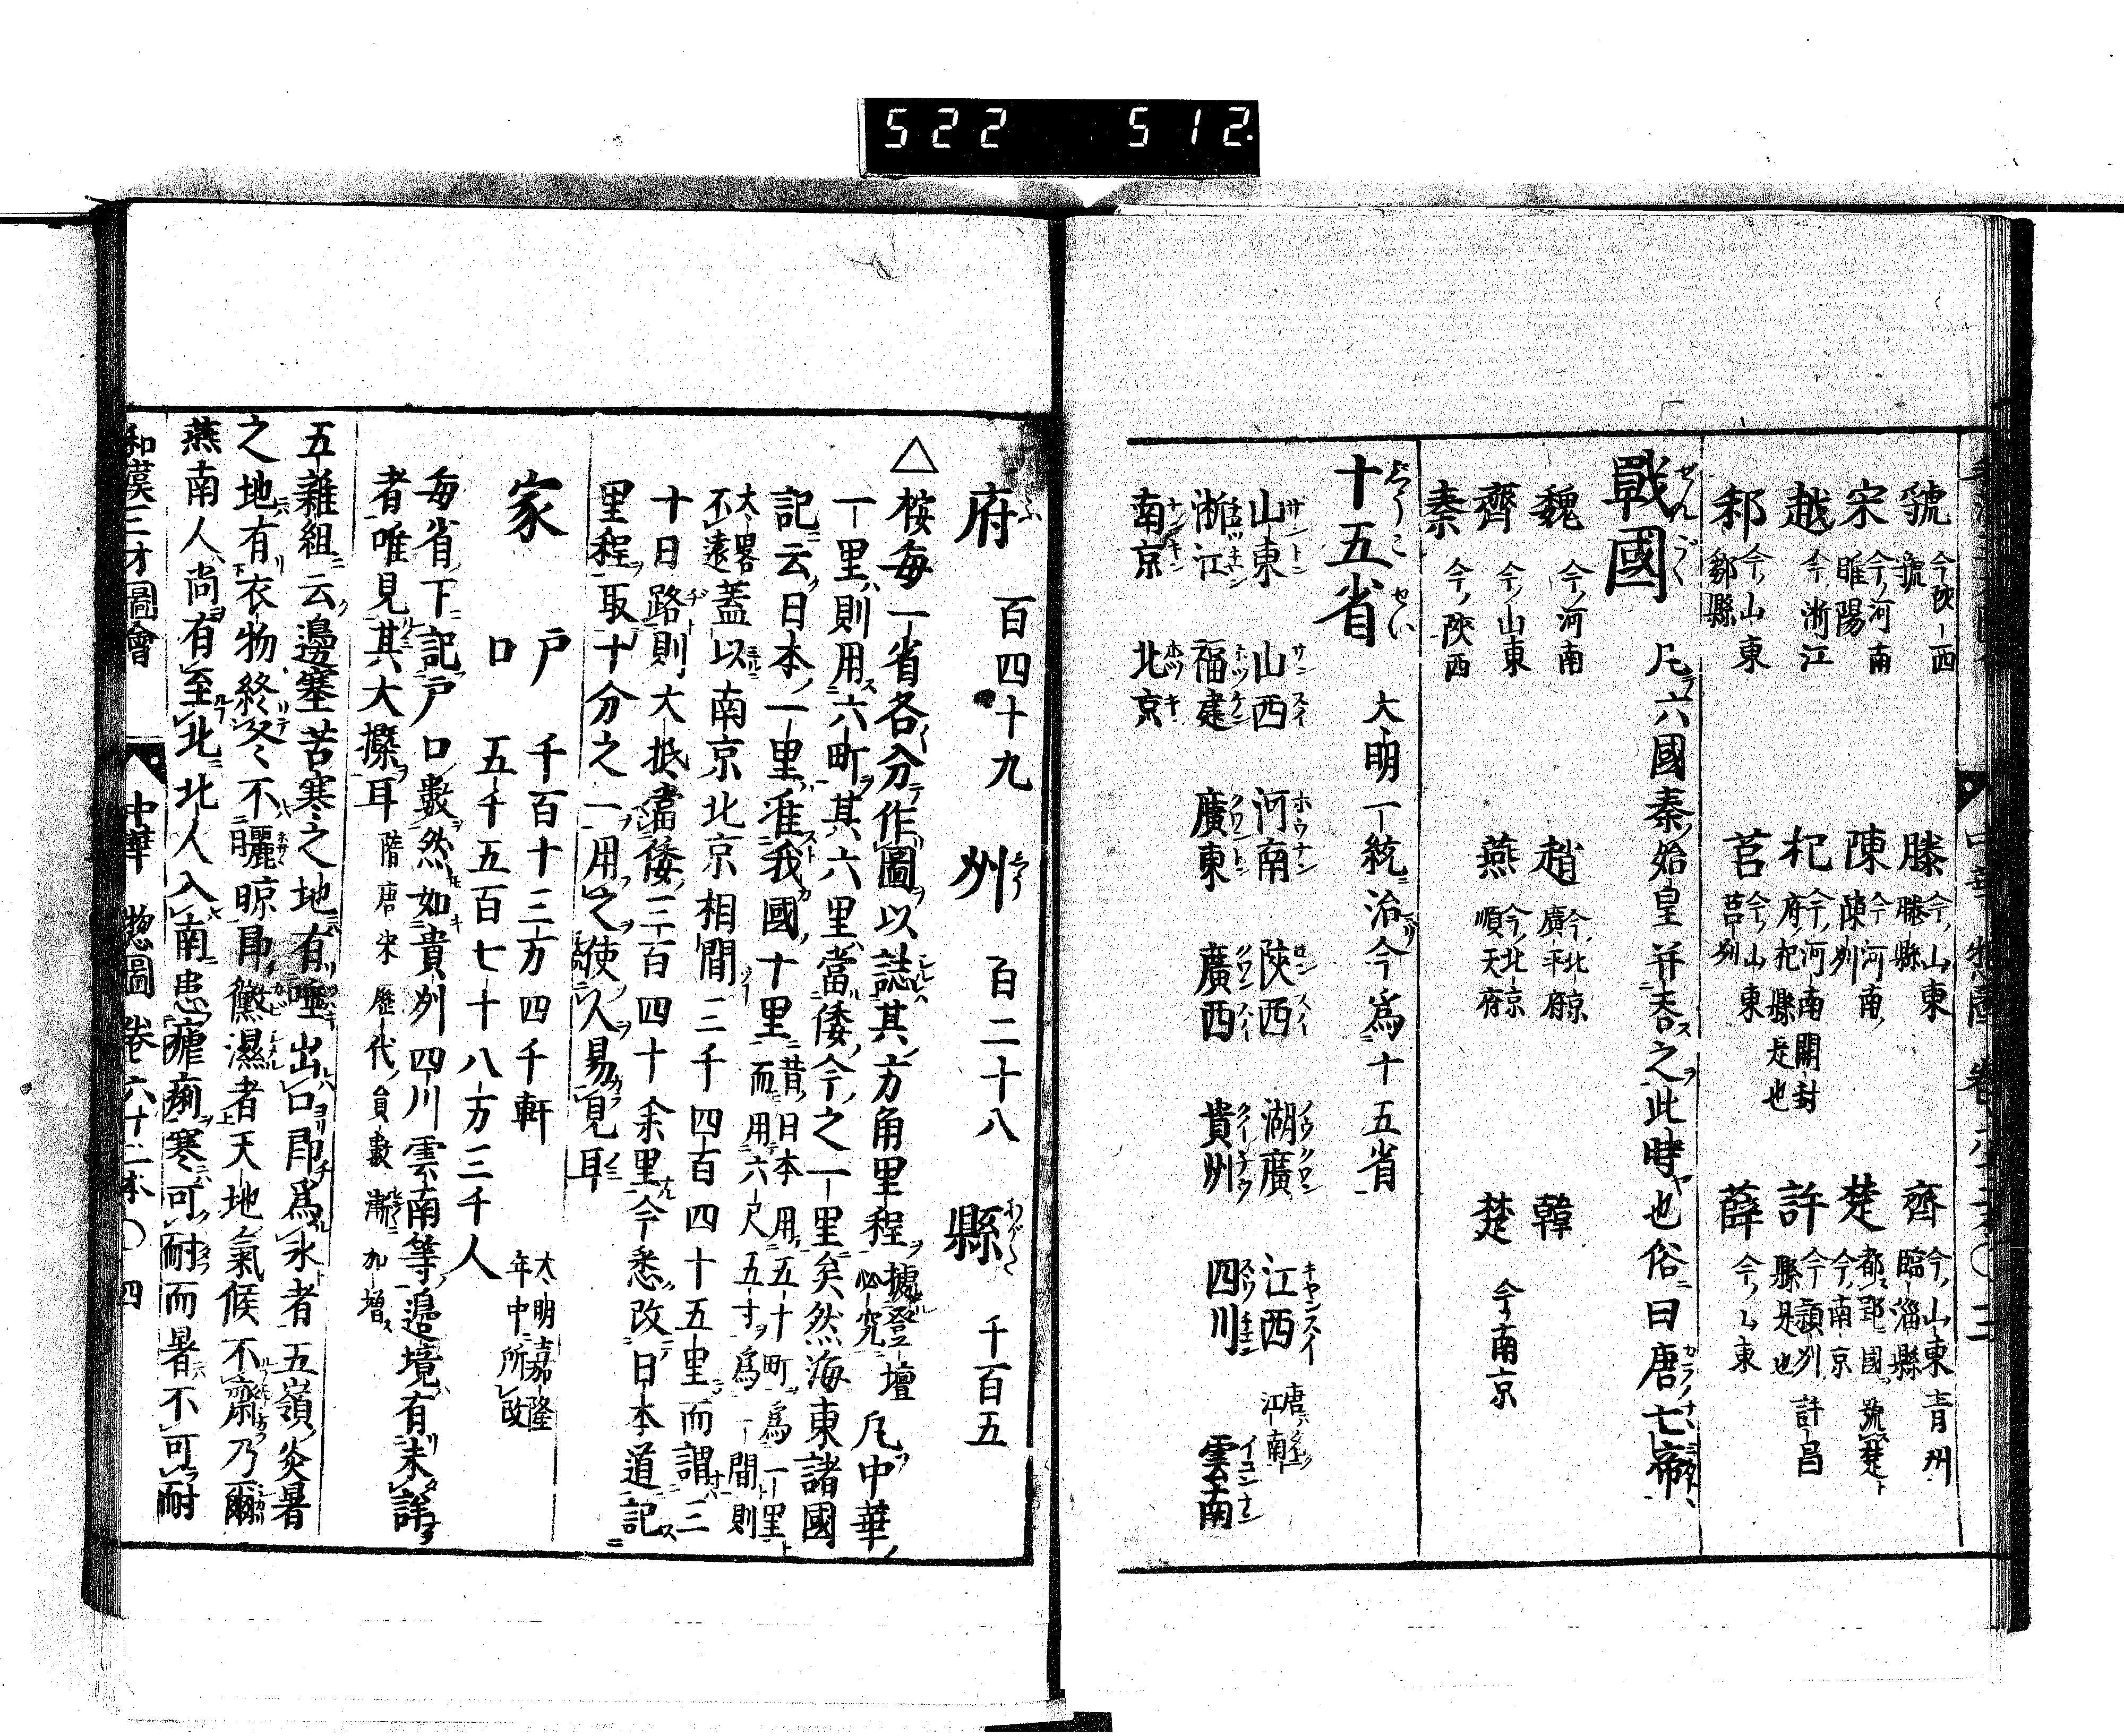 522 512
虢 今陝西虢 滕 今山東滕縣 齊 今山東青州臨淄縣
宋 今河南睢陽 陳 今河南陳州 楚 今南京都郢國號楚
越 今浙江 杞 今河南開封府杞縣是也 許 今潁州許昌縣是也
邾 今山東鄒縣 莒 今山東莒州 薛 今山東
戰國 凡六國秦始皇并吞之此時也俗曰唐七帝
魏 今河南 趙 今北京廣平府 韓
齊 今山東 燕 今北京順天府 楚 今南京
秦 今陝西
十五省 大明一統治今為十五省
山東 山西 河南 陝西 湖廣 江西 唐 江南
浙江 福建 廣東 廣西 貴州 四川 雲南
南京 北京
府 百四十九 州 百二十八 縣 千百五
△桉每一省各分作圖以誌其方角里程 據登壇必究 凡中華
一里則用六町其六里當倭今之一里矣然海東諸國
記云日本一里准我國十里 昔日本用五十町為一里而用六尺五寸為一間則
大畧不遠 蓋以南京北京相間三千四百四十五里而謂三
十日路則大抵當倭三百四十余里今悉改日本道記
里程取十分之一用之使人易見耳
家 戸 千百十三万四千軒 大明嘉隆
口 五千五百七十八万三千人 年中所改
每省下記戸口數然如貴州四川雲南等邊境有未詳
者唯見其大㮣耳 隋唐宋歷代員數漸加增
五雜組云邊塞苦寒之地有唾出口即為氷者五嶺炎暑
之地有衣物終冬不曬晾即黴濕者天地氣候不齊乃爾
燕南人尚有至北北人入南患瘧痢寒可耐而暑不可耐
和漢三才圖會 中華 惣圖 卷六十二本〇四